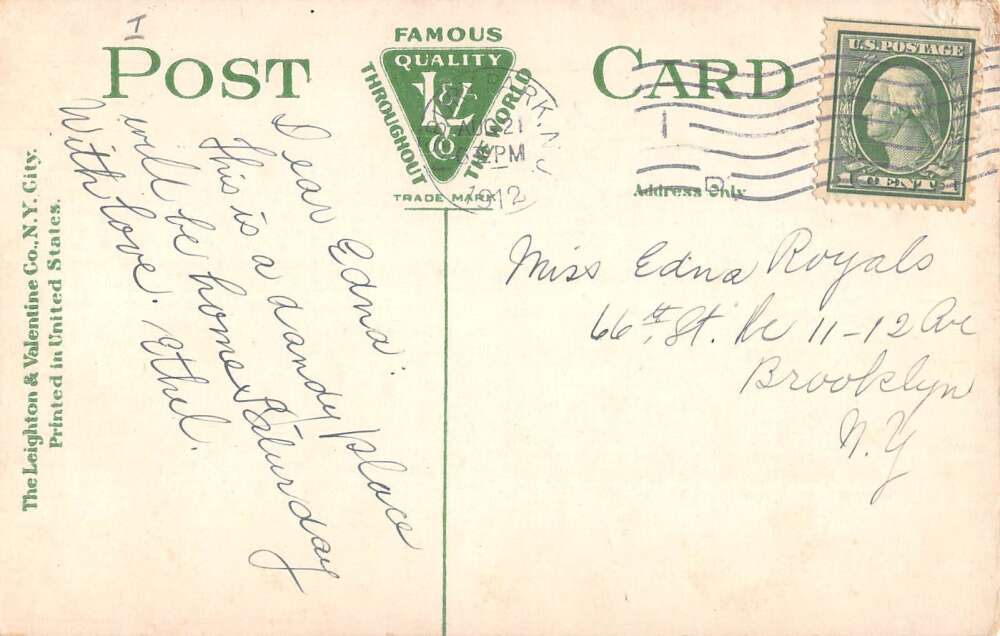 I
POST CARD
FAMOUS
QUALITY
THROUGHOUT
THE WORLD
L&V
Co
TRADE MARK
AUG 21
PM
1912
U.S. POSTAGE
1 CENT 1
Address Only
Dear Edna.
This is a dandy place
will be home Saturday
With love. Ethel.
Miss Edna Royals
66th St. Be 11-12 Ave
Brooklyn
N.Y
The Leighton & Valentine Co., N.Y. City.
Printed in United States.